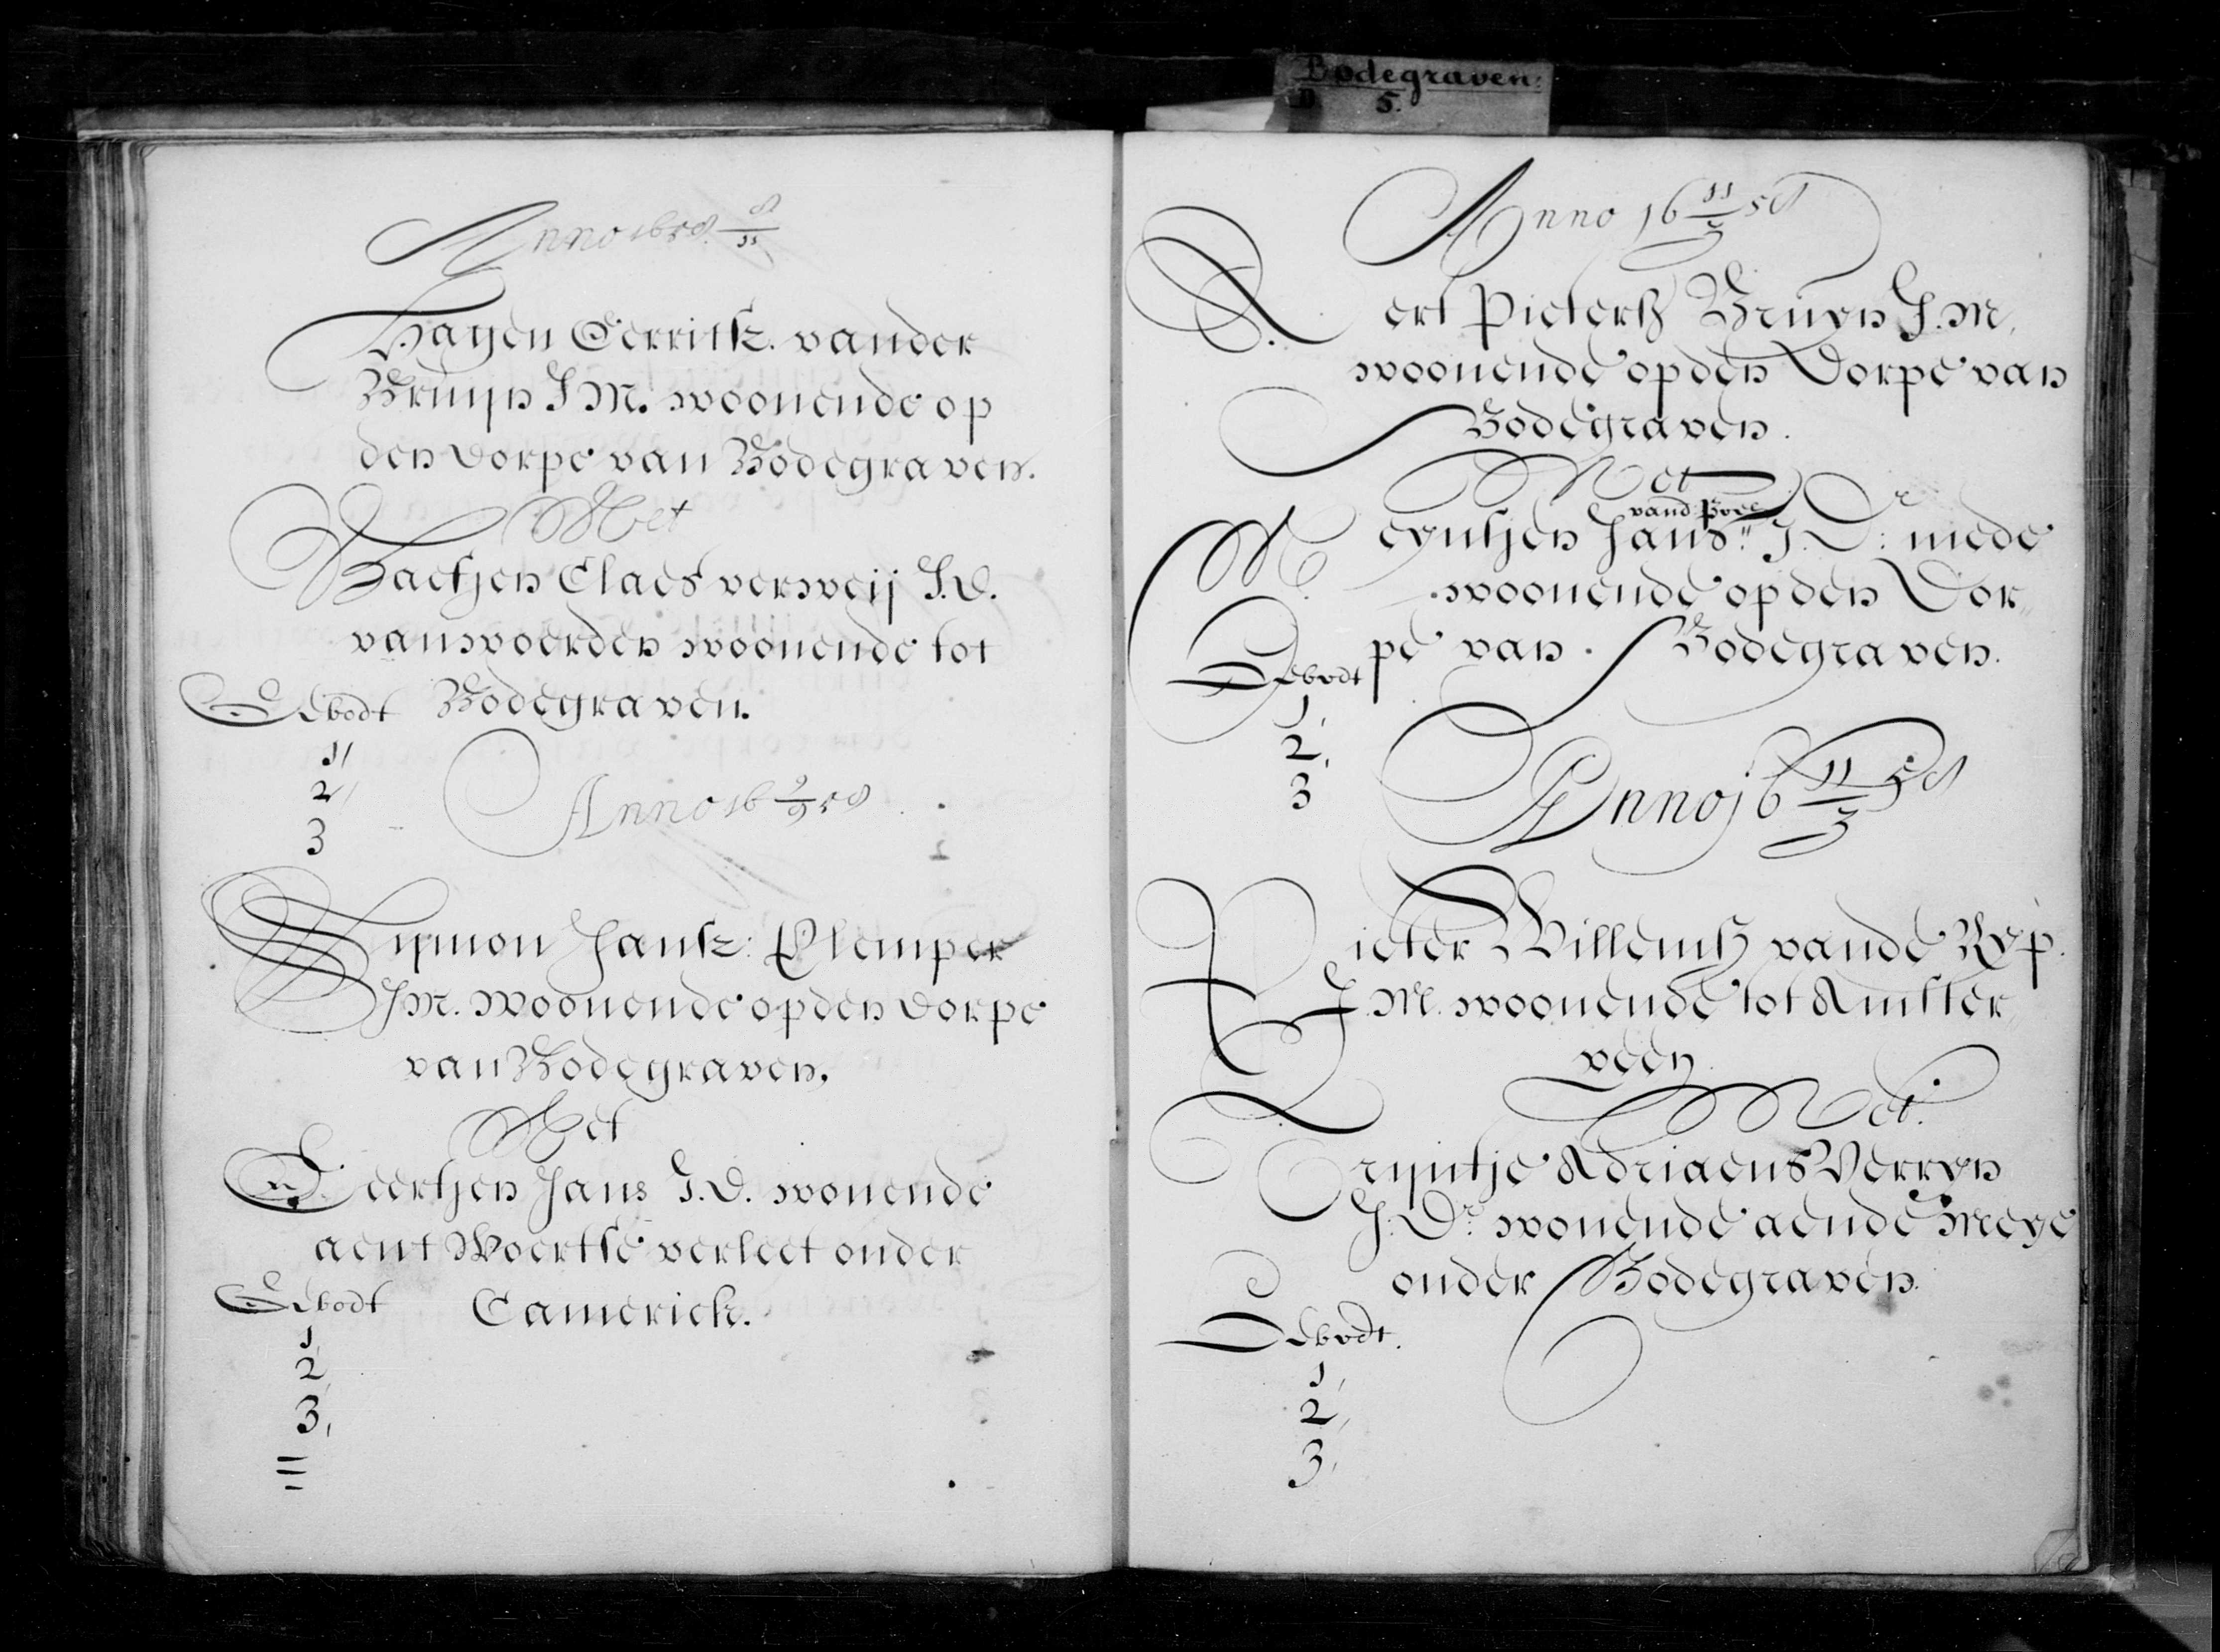 Bodegraven.
D 5.
Anno 1658. 8/11
Hayen Gerritsz. vander
Bruijn J M. woonende op
den dorpe van Bodegraven.
Met
Claes verweij J.D.
van woerden woonende tot
Bodegraven.
Gebodt
1
2
3
Anno 16 2/9 59
Sijmon Jansz: Clemper
JM. woonende op den dorpe
van Bodegraven.
Met
Neertjen Jans J.D. wonende
aent Woertse verleet onder
Camerick.
Gebodt
1
2
3
Anno 16 11/3 59
Aert Pietersz Bruyn J.M.
woonende op den Dorpe van
Bodegraven.
Met
Meyntjen Jans vand Poel J.Dr: mede
woonende op den Dor„
pe van Bodegraven.
Gebodt
1,
2,
3
Anno 16 11/3 59
Pieter Willemsz vande Ryp.
J.M. woonende tot Amster„
veen.
Met.
Trijntje Adriaens Verryn
J:Dr. wonende aende Meye
onder Bodegraven.
Gebodt.
1,
2,
3,